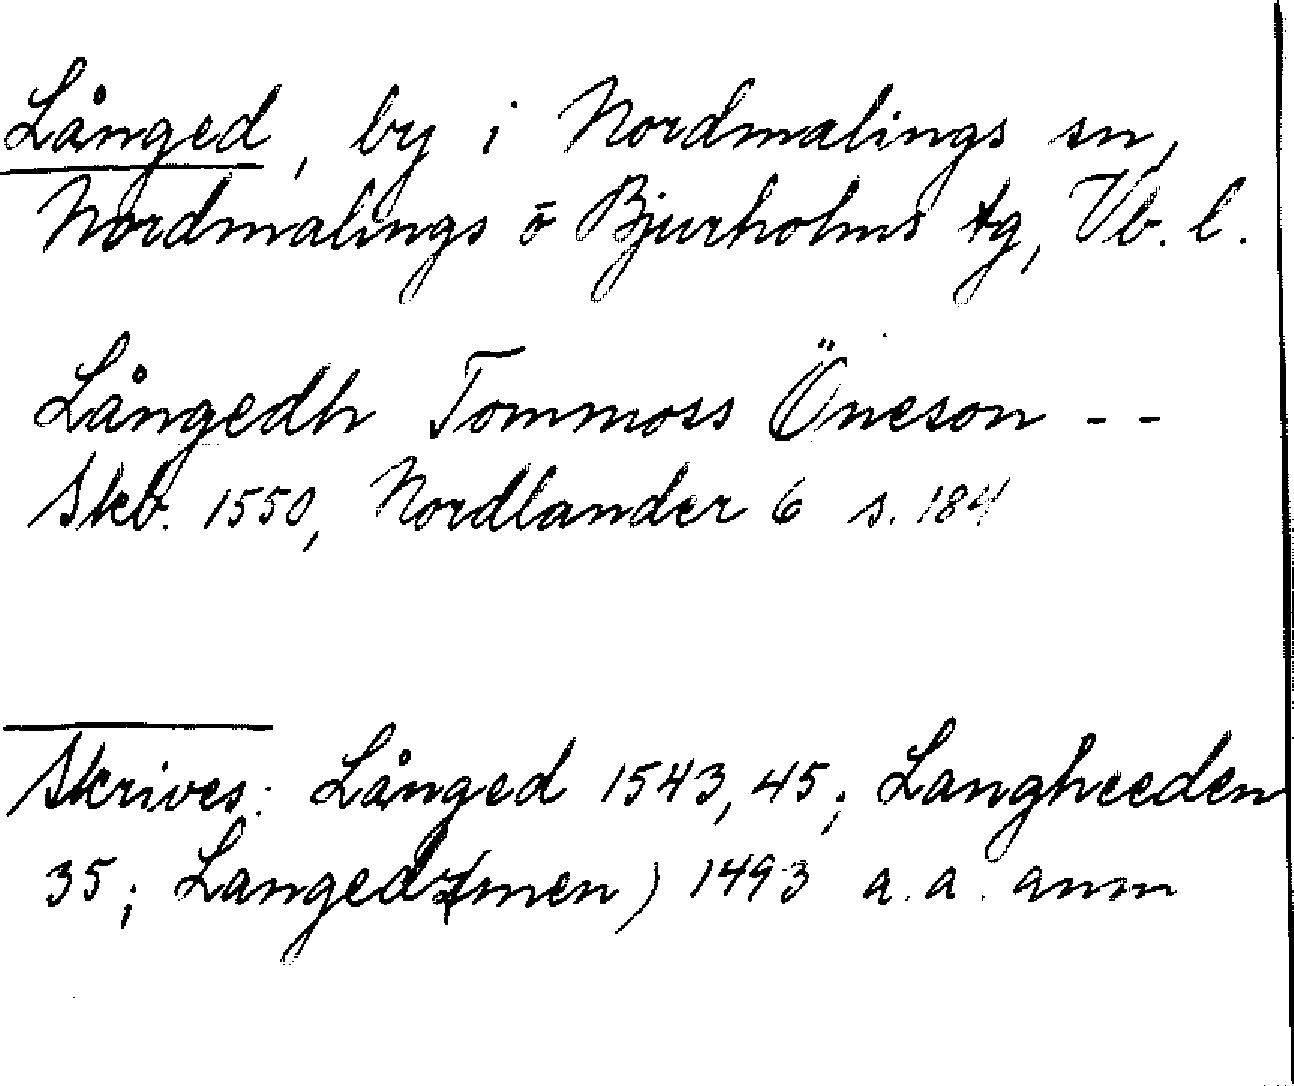 Långed, by i Nordmalings sn,
Nordmalings o Bjurholms tg, Vb. l.
Långedh Tommoss Öneson - -
Skb. 1550, Nordlander 6 s. 184
Skrives: Långed 1543, 45; Langheeden
35; Langedz(men) 1493 a. a. anm